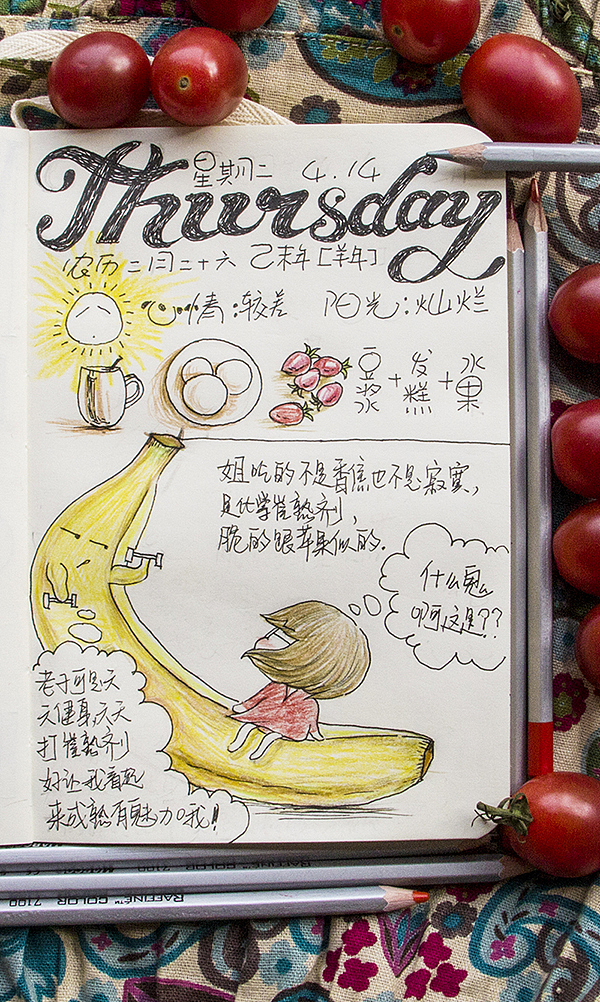 星期二 4.14
Thursday
农历二月二十六 乙未年[羊年]
心情:较差 阳光:灿烂
豆浆+发糕+水果
姐吃的不是香蕉也不是寂寞,
是化学催熟剂,
脆的跟苹果似的.
什么鬼
啊这是??
老子可是天
天健身,天天
打催熟剂
好让我看起
来成熟有魅力哦!
RAFFINE™ COLOR 7100